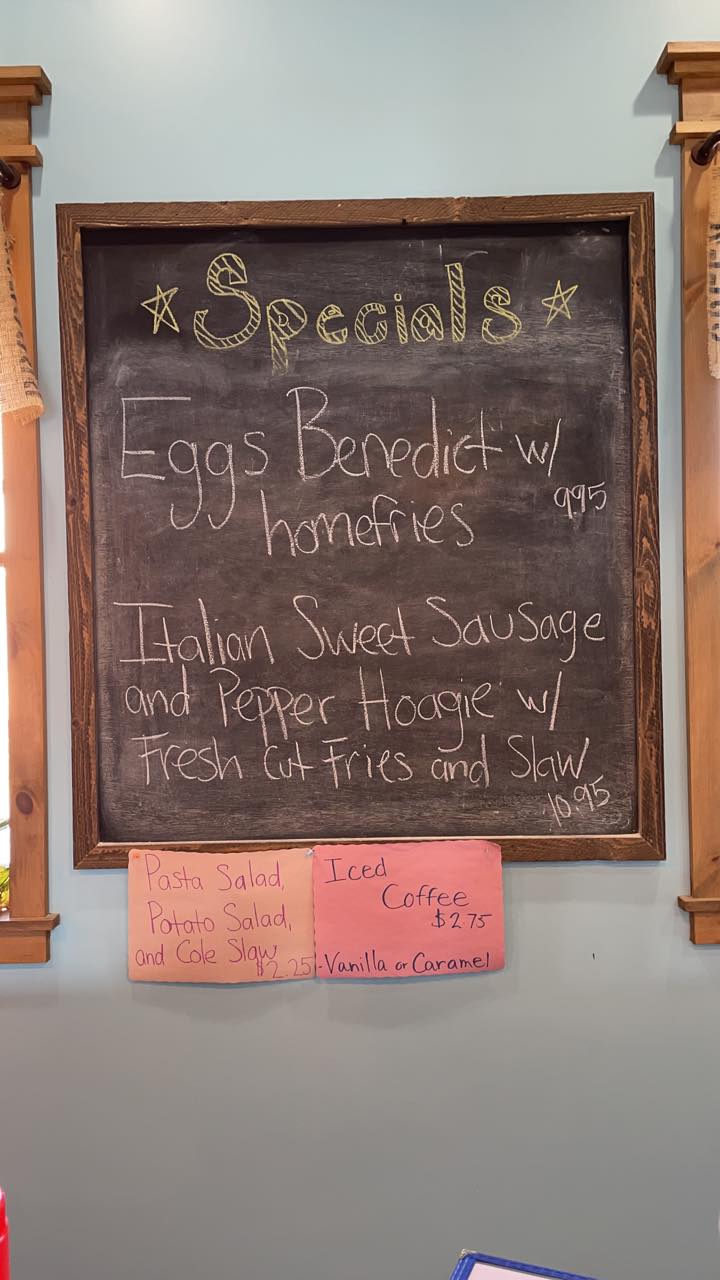 Specials
Eggs Benedict w/
homefries 9.95
Italian Sweet Sausage
and Pepper Hoagie w/
Fresh cut Fries and Slaw
10.95
Pasta Salad,
Potato Salad,
and Cole Slaw
$2.25
Iced
Coffee
$2.75
-Vanilla or Caramel